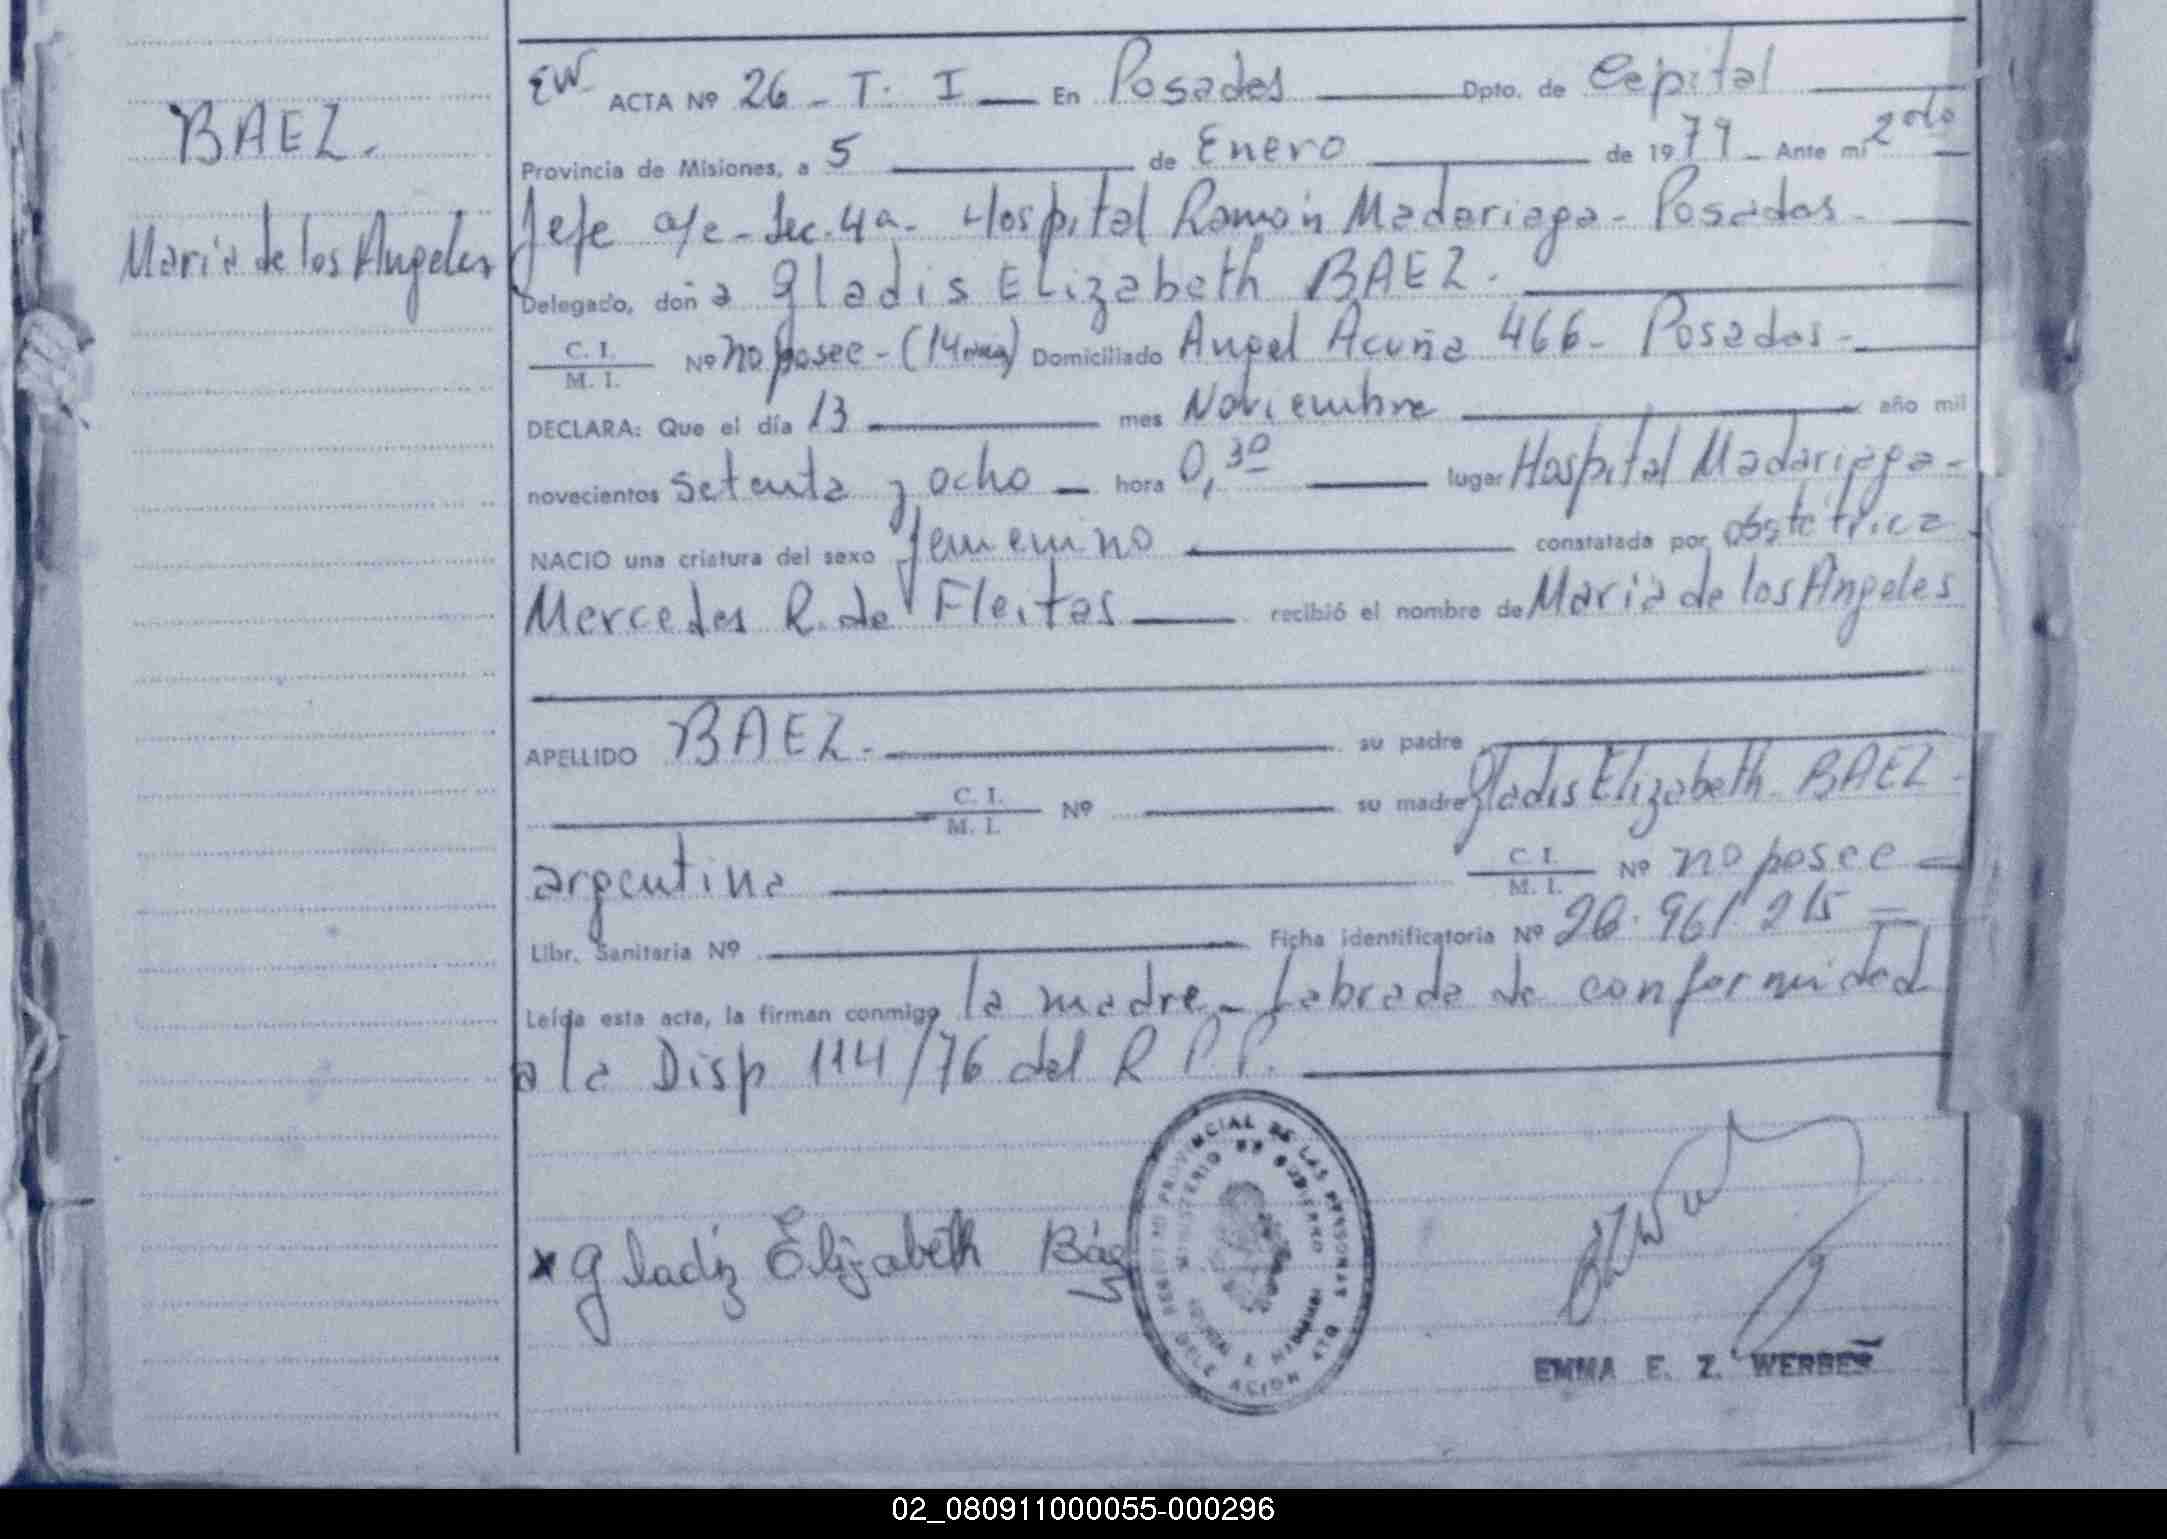 BAEZ.
Maria de los Angeles
EW ACTA Nº 26 - T. I — En Posadas — Dpto. de Capital
Provincia de Misiones, a 5 — de Enero — de 1979 - Ante mi 2do
Jefe a/c - Sec. 4a - Hospital Ramón Madariaga - Posadas -
Delegado, doña Gladis Elizabeth BAEZ.
C. I. / M. I. Nº no posee - (14 años) Domiciliado Angel Acuña 466 - Posadas -
DECLARA: Que el día 13 — mes Noviembre — año mil
novecientos setenta y ocho — hora 0,30 — lugar Hospital Madariaga -
NACIO una criatura del sexo femenino — constatada por obstétrica
Mercedes R. de Fleitas — recibió el nombre de Maria de los Angeles
APELLIDO BAEZ. — su padre —
— C. I. / M. I. Nº — su madre Gladis Elizabeth BAEZ -
argentina — C. I. / M. I. Nº no posee —
Libr. Sanitaria Nº — Ficha identificatoria Nº 26.961.215 =
Leída esta acta, la firman conmigo la madre - Labrada de conformidad
a la Disp 114/76 del R P. P.
x Gladiz Elizabeth Báez
REGISTRO PROVINCIAL DE LAS PERSONAS
MINISTERIO DE GOBIERNO
DELEGACION 4TA
EMMA E. Z. WERBES
02_080911000055-000296